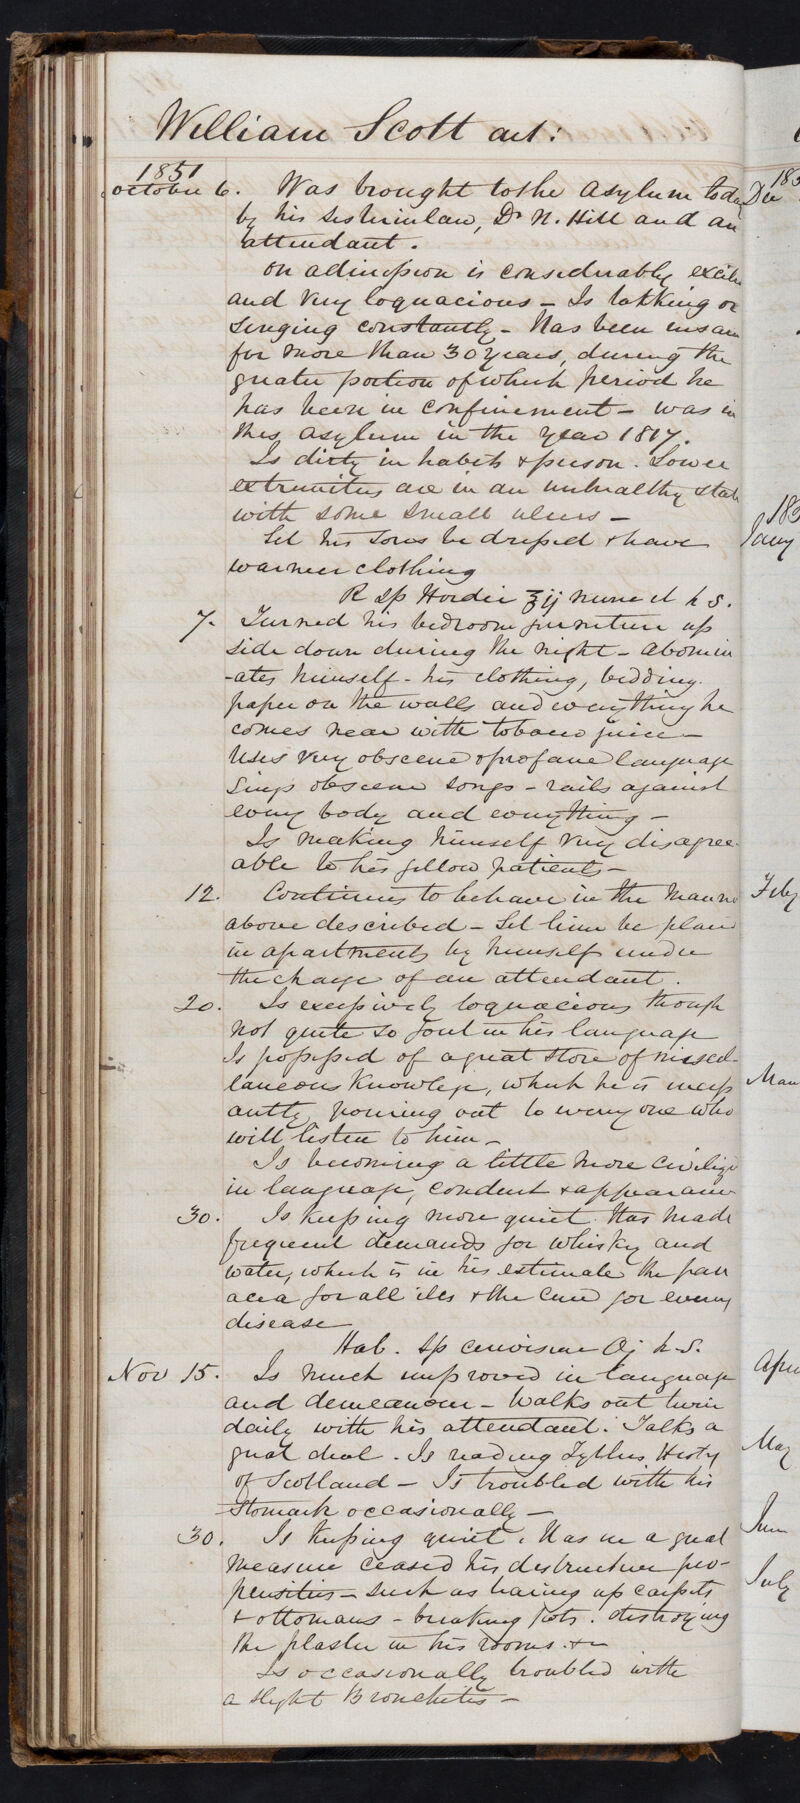 William Scott aet:
1851
October 6. Was brought to the Asylum today
by his sister in law, Dr N. Hill and an
attendant.
On admission is considerably excited
and very loquacious – Is talking or
singing constantly – Has been insane
for more than 30 years, during the
greater portion of which period he
has been in confinement – was in
this asylum in the year 1817.
Is dirty in habits & person. Lower
extremities are in an unhealthy state
with some small ulcers –
Let his sores be dressed & have
warmer clothing
R sp Hordei ℥ij nune et h s.
7. Turned his bedroom furniture up
side down during the night – abomin
-ates himself – his clothing, bedding
paper on the walls and everything he
comes near with tobacco juice –
Uses very obscene & profane language
Sings obscene songs – rails against
every body and everything –
Is making himself very disagree-
able to his fellow patients –
12. Continues to behave in the manner
above described – Let him be placed
in apartments by himself under
the charge of an attendant.
20. Is excessively loquacious though
not quite so foul in his language
Is possessed of a great store of miscel-
laneous knowlege, which he is incess
antly pouring out to every one who
will listen to him –
Is becoming a little more civilized
in language, conduct & appearance
30. Is keeping more quiet. Has made
frequent demands for whisky and
water, which is in his estimate the pan
acea for all iles & the cure for every
disease
Hab. sp cerevisiae Oj h.s.
Nov 15. Is much improved in language
and demeanour – Walks out twice
daily with his attendant. Talks a
great deal. Is reading Tytlers Histy
of Scotland – Is troubled with his
stomach occasionally –
30. Is keeping quiet. Has in a great
measure ceased his destructive pro-
pensities – such as tearing up carpets
& ottomans – breaking pots. destroying
the plaster in his rooms. &c
Is occasionally troubled with
a slight Bronchitis –
Dec
185
Jany
Feby
Mar
Apri
May
June
July